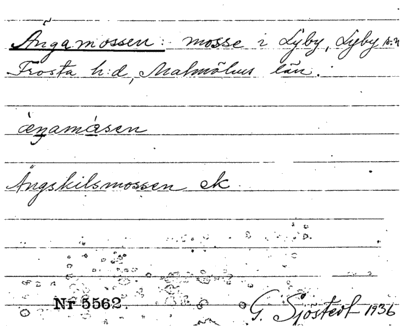 Ängamossen: mosse i Lyby, Lyby
Frosta h:d, Malmöhus län.
Ängskilsmossen ek
Nr 5562 G. Sjöstedt 1936